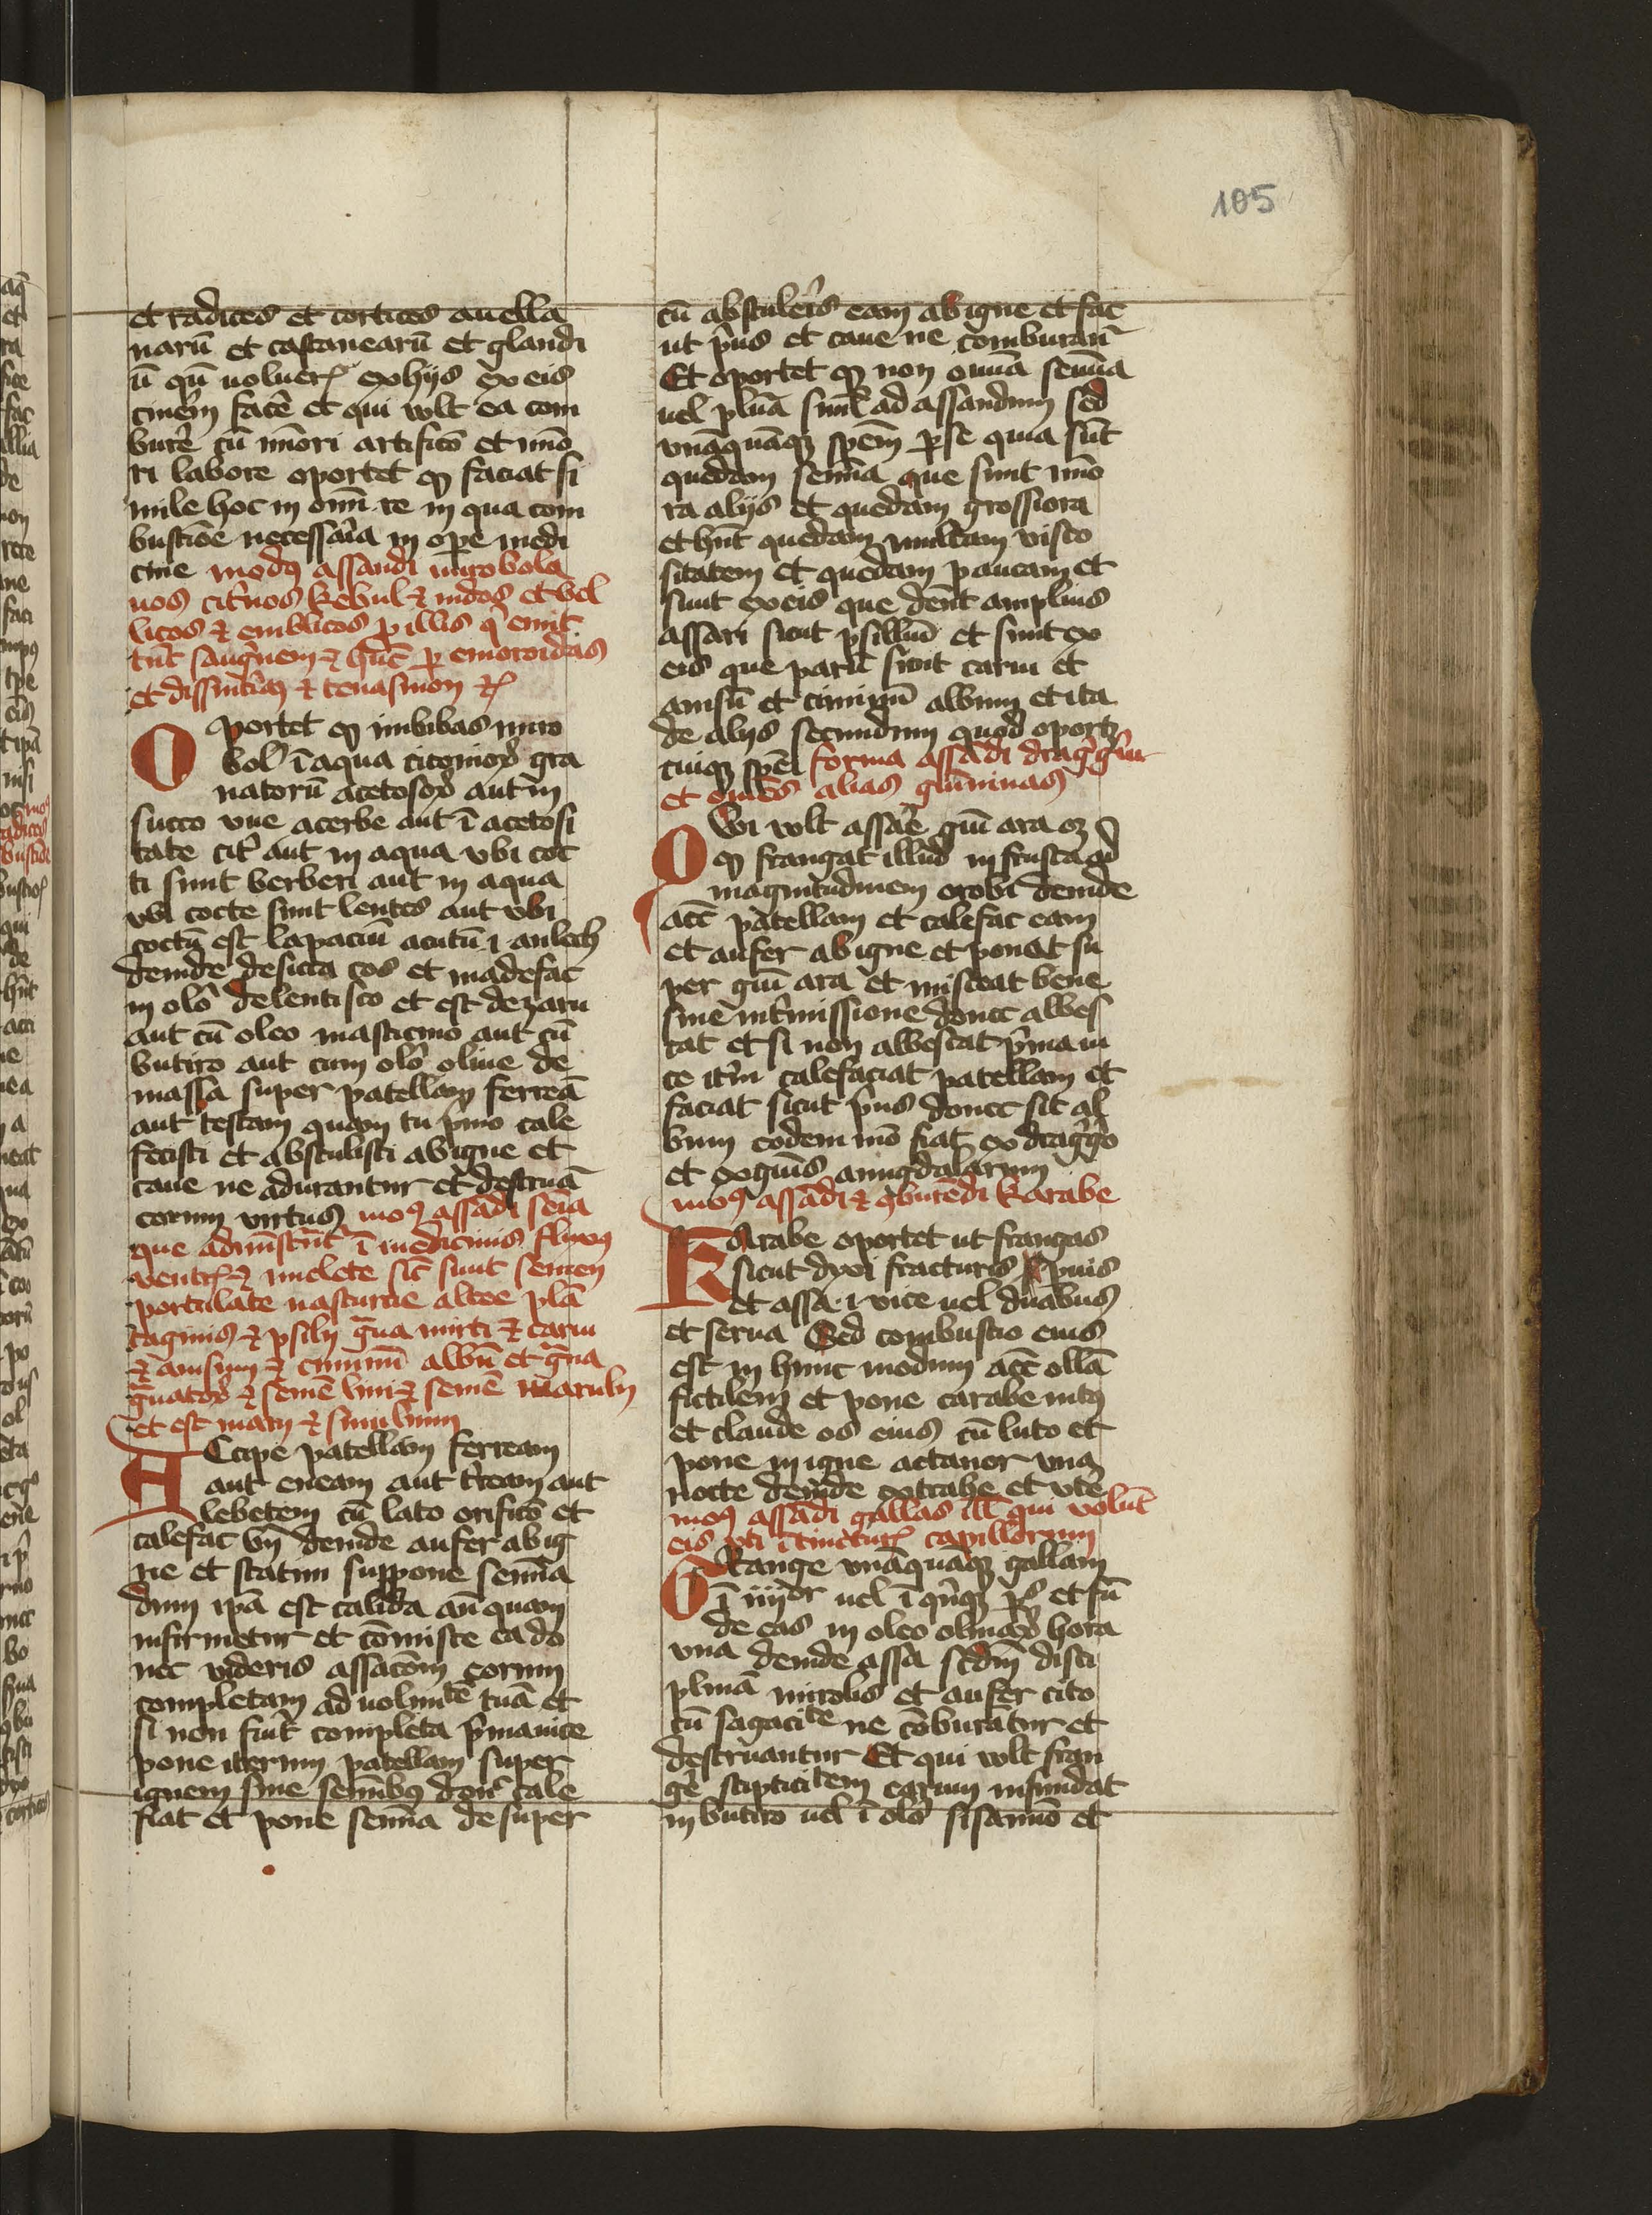 105
et radices et cortices auella
narū et castanearū et glandi
ū qū uoluerꝭ ex hijs ex eis
cinem̄ facē et qui vlt ea com
burē cū mīori artificō et mīo
ri labore oportet ꝙ faciat si
mile hoc in om̄i re in qua com
bustiōe necessaria in ope medi
cine modꝰ assandi mirobola
nos cit̄nos kebul ⁊ indos et bel
licos ⁊ emblicos ꝓ illis q̄ emit
tūt saugͥnem ⁊ hn̄t ꝑ emoroidas
et dissint̄iā ⁊ tenasmon ⁊ꝭ
Oportet ꝙ imbibas miro
bol̄ ī aqua citonioꝝ gra
natorū acetosoꝝ aut in
succo vue acerbe aut ī acetosi
tate cit̄ aut in aqua vbi coc
ti sunt berberi aut in aqua
vbi cocte sunt lentes aut vbi
coctū est lapaciū acutū
deinde desicca eos et madefac
in olō de lentisco et est dezaru
aut cū oleo masticino aut cū
butiro aut cum olō oliue de
massa super patellam ferreā
aut testam quam tu pͥmo cale
fecisti et abstulisti ab igne et
caue ne adurantur et destruā
eorum virtus moꝰ assādi sēia
que admīstn̄t ī medicinis fluxꝰ
ventrꝭ ⁊ sic̄ sunt semen
portulace nasturcie altee plā
taginis ⁊ psilij gͣna mirti ⁊ carui
⁊ anisum ⁊ ciminū albū et gͣna
gͣnatoꝝ ⁊ semē lini ⁊ semē maruli
et est
Accipe patellam ferream
aut eneam aut t̄ream aut
lebetem cū lato orificō et
calefac deinde aufer ab ig
ne et statim suppone semīa
dum ipā est calida an̄ quam
infirmetur et cōmisce ea do
nec videris assacōm eorum
completam ad uoluntē tuā et
si non fuīt completa pͥma uice
pone iterum patellam super
ignem sine semībꝰ donͨ cale
fiat et pone semīa desuper
cū abstuleris eam ab igne et fac
ut pͥus et caue ne comburant̄
Et oportet ꝙ non omīa semīa
uel plura siml̄ ad assandum sed
vnāquāqꝫ spēm ꝑ se quia sūt
quedam semīa que sunt mīo
ra alijs et quedam grossiora
et hn̄t quedam multam visco
sitatem et quedam paucam et
sunt ex eis que dent̄ amplius
assari sicut psilliū et sunt ex
eis que parū sicut carui et
anisū et ciminū album et ita
de alijs secundum quod oportꝫ
cuiqꝫ spēi forma assādi draggͣm
et om̄es alias gūminas
Qui vlt assare gūi ara oꝫ
ꝙ frangat illud in frusta ad
magnitudinem orobi deinde
acc̄ patellam et calefac eam
et aufer ab igne et ponat su
per gūi ara et misceat bene
sine int̄missione donec albes
cat et si non albescat pͥma ui
ce it̄m calefaciat patellam et
faciat sicut pͥus donec sit al
bum eodem mō fiat ex draggͣo
et ex gūis amigdalarum
moꝰ assādi ⁊ ꝯburēdi karabe
Karabe oportet ut frangas
sicut dyxi fracturis pͥmis
et assa ·i· vice uel duabus
et serua Sed combustio eius
est in hunc modum acc̄ ollā
fictilem et pone carabe intꝰ
et claude os eius cū luto et
pone in igne actanor vna
nocte deinde extrahe et vtē
moꝰ assādi gallas ill̄ qui volūt
eis vti ī tincturꝭ capillorum
Frange vnāquāqꝫ gallam
ī iiijor uel ī qͥnqꝫ ꝑꝭ et fū
de eas in oleo oliuaꝝ hora
vna deinde assa scd̄m disci
plinā mirobs et aufer cito
cū sagacitē ne cōburātur et
destruantur Et qui vlt fran
gē stipticitem earum infundat
in butiro uel ī olō sisamīo et